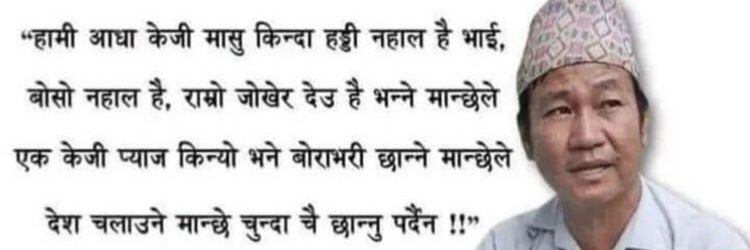 “हामी आधा केजी मासु किन्दा हड्डी नहाल है भाई,
बोसो नहाल है, राम्रो जोखेर देउ है भन्ने मान्छेले
एक केजी प्याज किन्यो भने बोराभरी छान्ने मान्छेले
देश चलाउने मान्छे चुन्दा चै छान्नु पर्दैन !!”